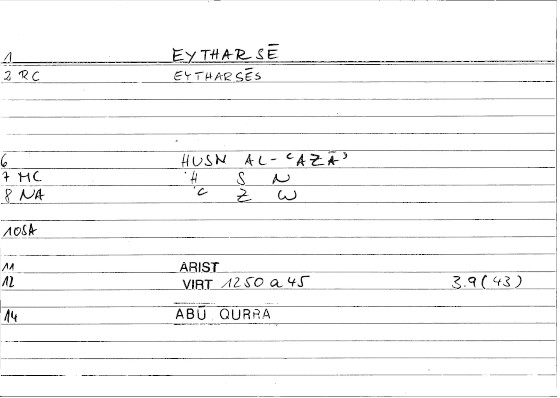 1 EYTHARSĒ
2 RC EYTHARSĒS
6 HUSN AL-ʿAZĀʾ
7 MC Ḥ S N
8 NA ʿ Z W
10SA
11 ARIST
12 VIRT 1250 a 45 3.9(43)
14 ABŪ QURRA